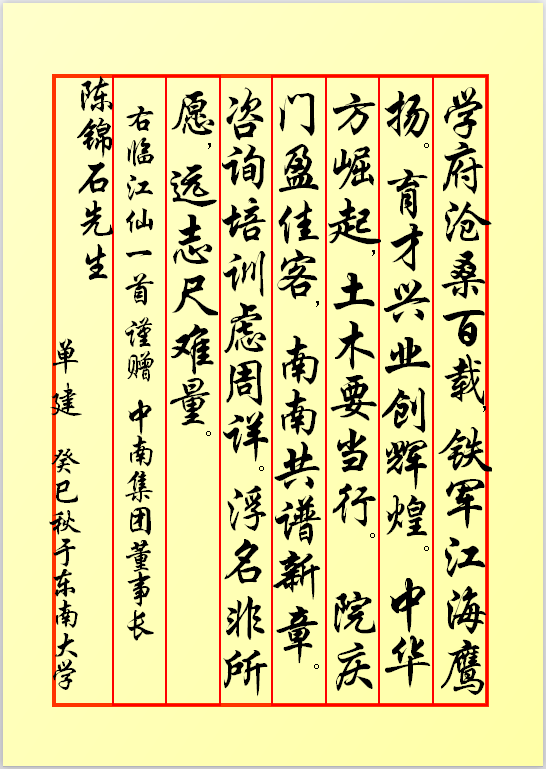 学府沧桑百载，铁军江海鹰
扬。育才兴业创辉煌。中华
方崛起，土木要当行。院庆
门盈佳客，南南共谱新章。
咨询培训虑周详。浮名非所
愿，远志尺难量。
右临江仙一首谨赠 中南集团董事长
陈锦石先生
单建 癸巳秋于东南大学